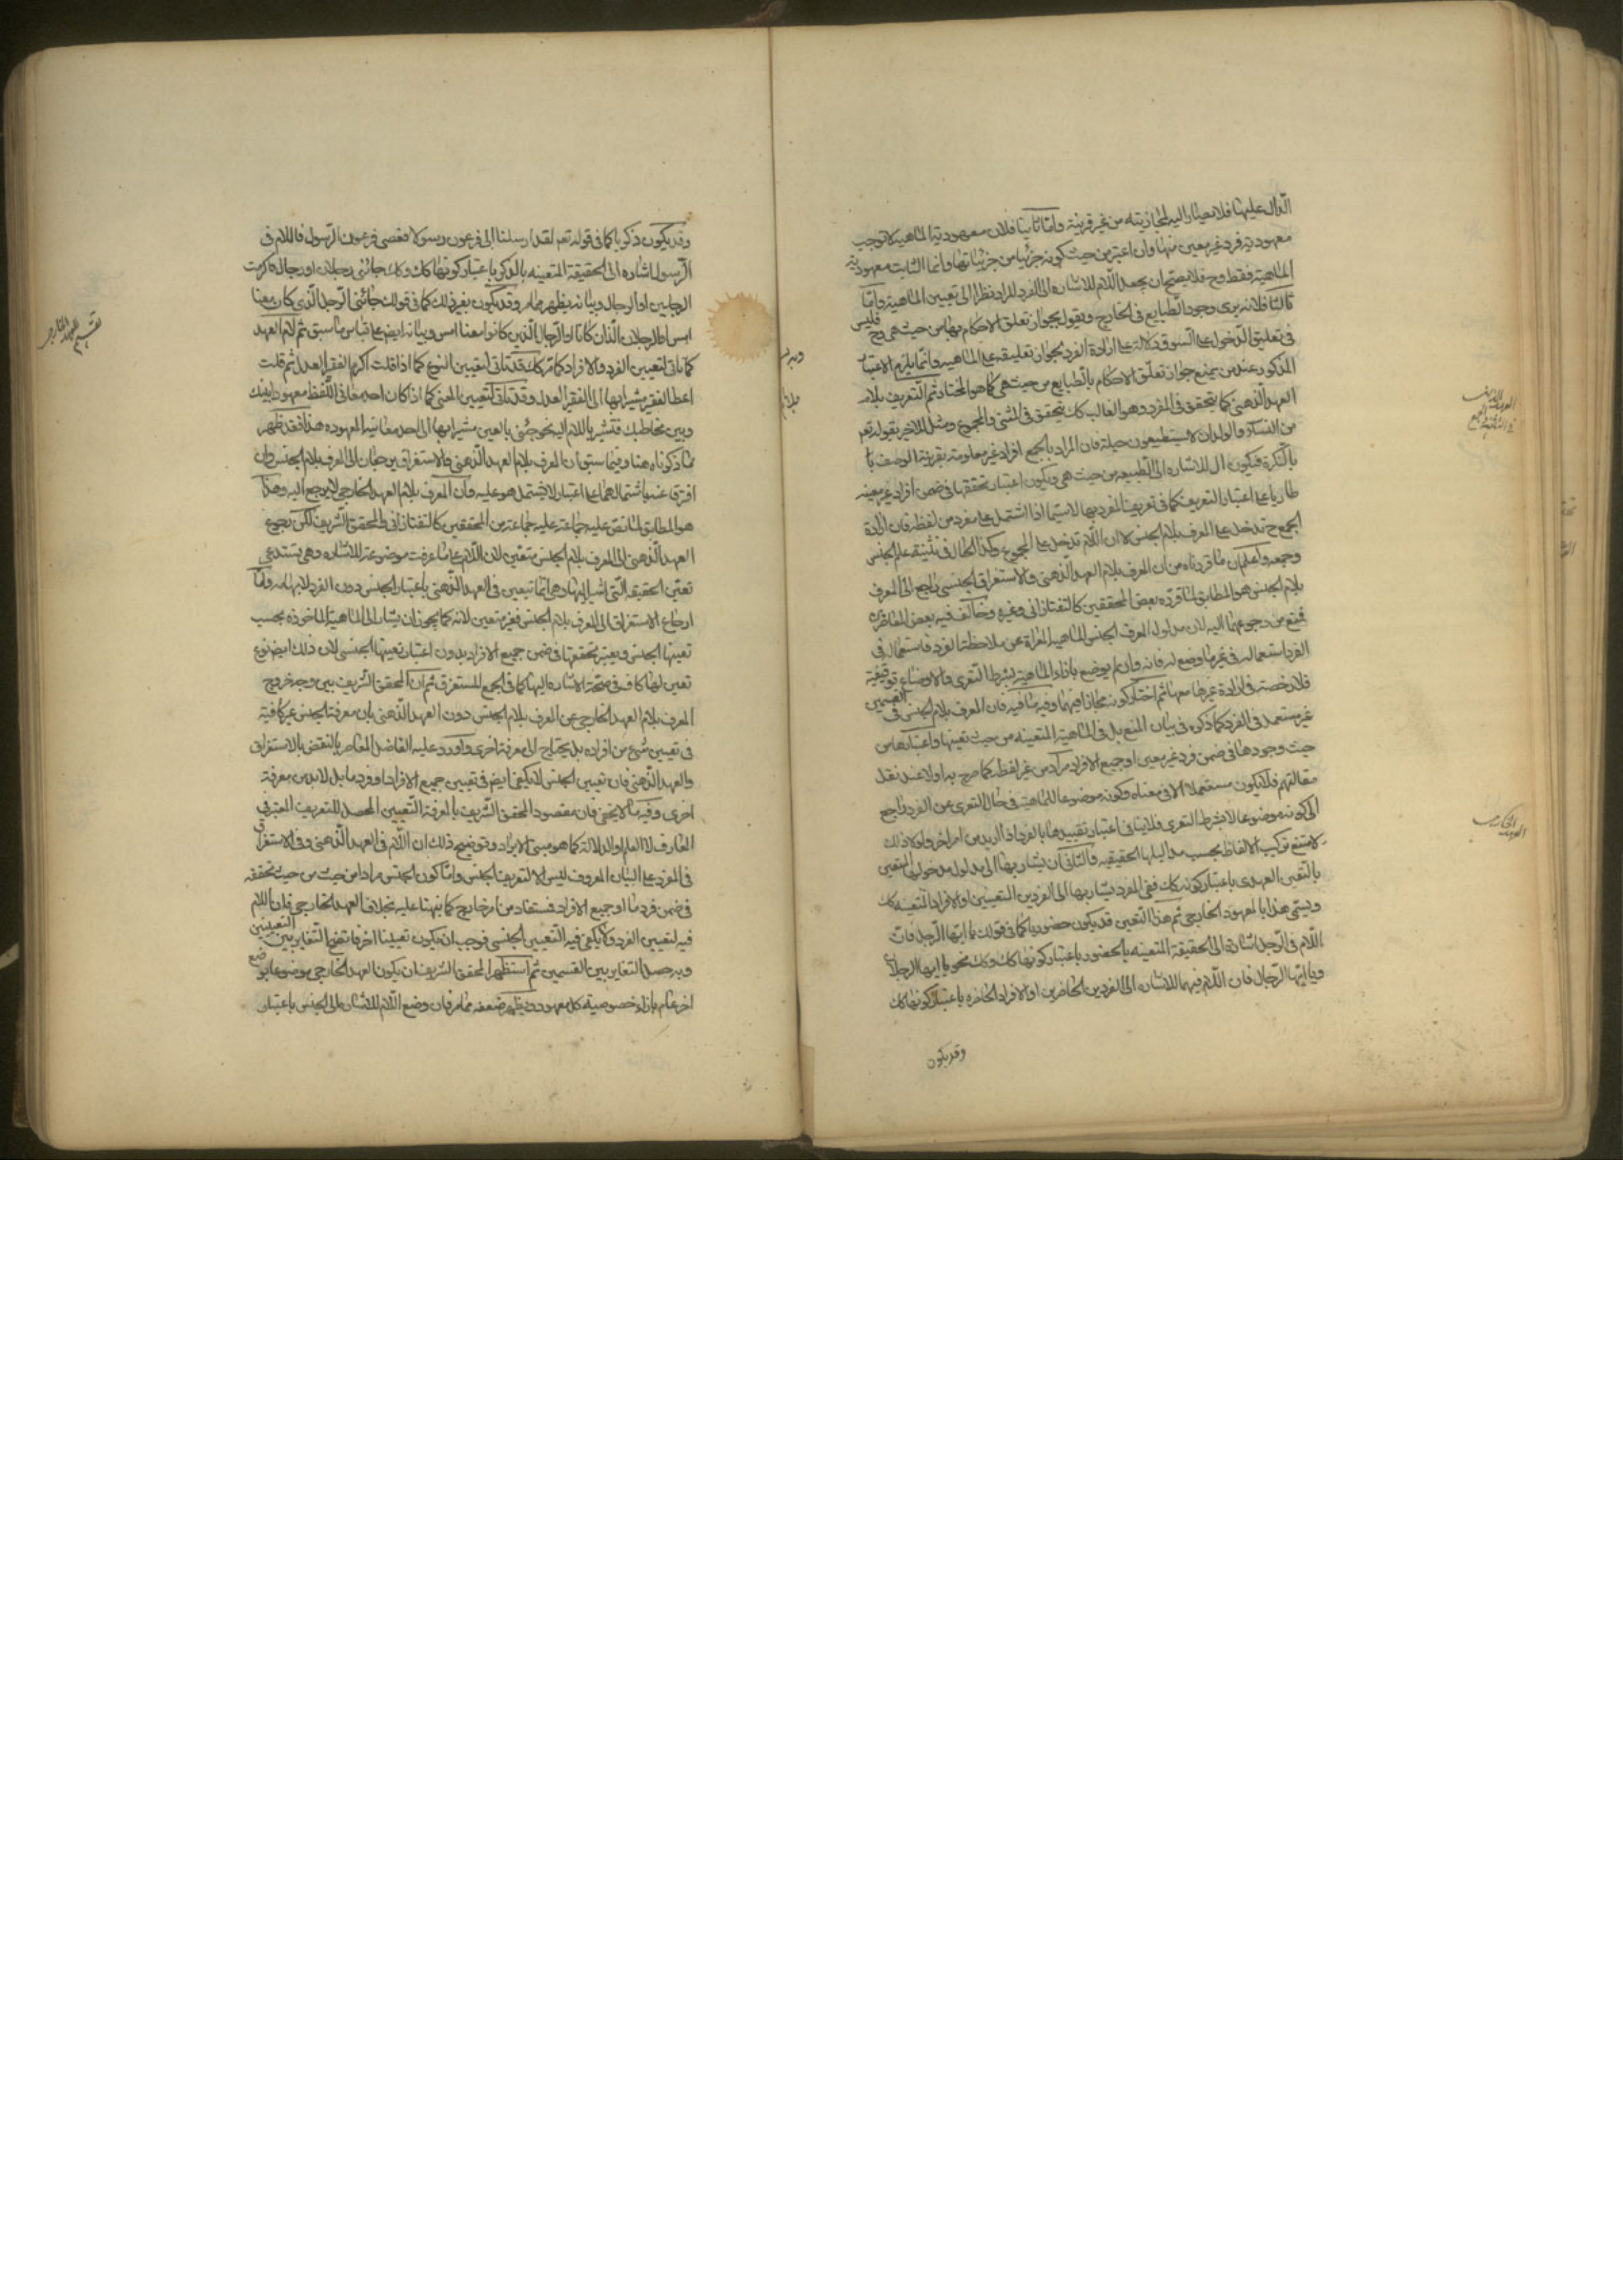 الدال عليها فلا يصار اليه لمجازيته من غير قرينة واما ثانيا فلان معهودية الماهية لا توجب
معهودية فرد غير معين منها وان اعتبر من حيث كونه جزئيا من جزئياتها وانما الثابت معهودية
الماهية فقط وح فلا يصح ان يجعل اللام للاشارة الى الفرد المراد نظرا الى تعيين الماهية واما
ثالثا فلانه يرى وجود الطبايع في الخارج ويقول بجواز تعلق الاحكام بها من حيث هي وح فليس
في تعليق الدخول على السوق دلالة على ارادة الفرد لجواز تعليقه على الماهية وانما يلزم الاعتبار
المذكور عند من يمنع جواز تعلق الاحكام بالطبايع من حيث هي كما هو المختار ثم التعريف بلام
العهد الذهني كما يتحقق في المفرد وهو الغالب كك يتحقق في المثنى والمجموع ومثل للاخير بقوله تعم
من النساء والولدان لا يستطيعون حيلة فان المراد بالجمع افراد غير معلومة بقرينة الوصف با
بالنكرة فيكون ال للاشارة الى الطبيعة من حيث هي ويكون اعتبار تحققها في ضمن افراد غير معينة
طاريا على اعتبار التعريف كما في تعريف المفرد بها لا سيما اذا اشتمل على مفرد من لفظه فان اداة
الجمع ح تدخل على المعرف بلام الجنس لا ان اللام تدخل على المجموع وكذا الحال في تثنية علم الجنس
وجمعه واعلم ان ما قررناه من ان المعرف بلام العهد الذهني والاستغراق الجنسي راجع الى المعرف
بلام الجنس هو المطابق لما قرره بعض المحققين كالتفتازاني وغيره وخالف فيه بعض المعاصرين
فمنع من رجوعهما اليه لان مدلول المعرف الجنس الماهية المعراة عن ملاحظة الفرد فاستعماله في
الفرد استعمال له في غير ما وضع له فانه وان لم يوضع بازاء الماهية بشرط التعرى والاوضاع توقيفية
فلا رخصة في ارادة غيرها معها ثم اختار كونه مجازا فيهما وفيه ما فيه فان المعرف بلام الجنس في القسمين
غير مستعمل في الفرد كما ذكره في بيان المنع بل في الماهية المتعينة من حيث تعينها واعتبارها من
حيث وجودها في ضمن فرد غير معين او جميع الافراد مراد من غير لفظه كما صرح به اولا عند نقل
مقالتهم فلا يكون مستعملا الا في معناه وكونه موضوعا للماهية في حال التعرى عن الفرد راجع
الى كونه موضوعا لا بشرط التعرى فلا ينافى اعتبار تقييدها بالفرد اذا اريد من امر اخر ولولا ذلك
لامتنع تركيب الالفاظ بحسب مداليلها الحقيقية والثاني ان يشار بها الى مدلول مدخولها المتعين
بالتعين العهدى باعتبار كونه كك ففي المفرد يشار بها الى الفردين المتعينين او الافراد المتعينة كك
ويسمى هذا بالمعهود الخارجي ثم هذا التعين قد يكون حضوريا كما في قولك يا ايها الرجل فان
اللام في الرجل اشارة الى الحقيقة المتعينة بالحضور باعتبار كونها كك وكك نحو يا ايها الرجلان
ويا ايها الرجال فان اللام فيهما للاشارة الى الفردين الحاضرين او الافراد الحاضرة باعتبار كونها كك
وقد يكون
العهد الذهني
في التثنية والجمع
العهد الخارجي
وقد يكون ذكريا كما في قوله تعم لقد ارسلنا الى فرعون رسولا فعصى فرعون الرسول فاللام في
الرسول اشارة الى الحقيقة المتعينة بالذكر باعتبار كونها كك وكك جائني رجلان او رجال فاكرمت
الرجلين او الرجال وبيانه يظهر مما مر وقد يكون بغير ذلك كما في قولك جائني الرجل الذي كان معنا
امس او الرجلان اللذان كانا او الرجال الذين كانوا معنا امس وبيانه ايض على قياس ما سبق ثم لام العهد
كما تاتى لتعيين الفرد والافراد كما مر كك قد تاتى لتعيين النوع كما اذا قلت اكرم الفقير العدل ثم قلت
اعط الفقير مشيرا بها الى الفقير العدل وقد تاتى لتعيين المعنى كما اذا كان احد معاني اللفظ معهودا بينك
وبين مخاطبك فتشير باللام اليه نحو جئني بالعين مشيرا بها الى احد معانيه المعهودة هذا فقد ظهر
مما ذكرناه هنا وفيما سبق ان المعرف بلام العهد الذهني والاستغراق يرجعان الى المعرف بلام الجنس وان
افترقا عنه باشتمالهما على اعتبار لا يشتمل هو عليه وان المعرف بلام العهد الخارجي لا يرجع اليه وهذا
هو المطابق لما نص عليه جماعة عليه جماعة من المحققين كالتفتازاني والمحقق الشريف لكن رجوع
العهد الذهني الى المعرف بلام الجنس متعين لان اللام على ما عرفت موضوعة للاشارة وهي تستدعي
تعين الحقيقة التي اشير اليها وهي انما تتعين في العهد الذهني باعتبار الجنس دون الفرد لابهامه واما
ارجاع الاستغراق الى المعرف بلام الجنس فغير متعين لانه كما يجوز ان يشار الى الماهية الماخوذة بحسب
تعينها الجنسي ويعتبر تحققها في ضمن جميع الافراد بدون اعتبار تعينها الجنسي لان ذلك ايض نوع
تعين لها كاف في صحة الاشارة اليها كما في الجمع المستغرق ثم ان المحقق الشريف بين وجه خروج
المعرف بلام العهد الخارجي عن المعرف بلام الجنس دون العهد الذهني بان معرفة الجنس غير كافية
في تعيين شئ من افراده بل يحتاج الى معرفة اخرى واورد عليه الفاضل المعاصر بالنقض بالاستغراق
والعهد الذهني فان تعيين الجنس لا يكفي ايض في تعيين جميع الافراد او فرد ما بل لا بد من معرفة
اخرى وفيه ما لا يخفى فان مقصود المحقق الشريف بالمعرفة التعيين المحصل للتعريف المعتبر في
المعارف لا العلم او الدلالة كما هو مبنى الايراد وتوضيح ذلك ان اللام في العهد الذهني وفي الاستغراق
في المفرد على البيان المعروف ليس الا لتعريف الجنس واما كون الجنس مرادا من حيث من حيث تحققه
في ضمن فرد ما او جميع الافراد فمستفاد من امر خارج كما نبهنا عليه بخلاف العهد الخارجي فان اللام
فيه لتعيين الفرد ولا يكفى فيه التعيين الجنسي فوجب ان يكون تعيينا اخر فاتضح التغاير بين التعيينين
وبه حصل التغاير بين القسمين ثم استظهر المحقق الشريف ان يكون العهد الخارجي موضوعا بوضع
اخر عام بازاء خصوصية كل معهود ويظهر ضعفه مما مر فان وضع اللام للاشارة الى الجنس باعتبار
تقسيم للعهد الخارجي